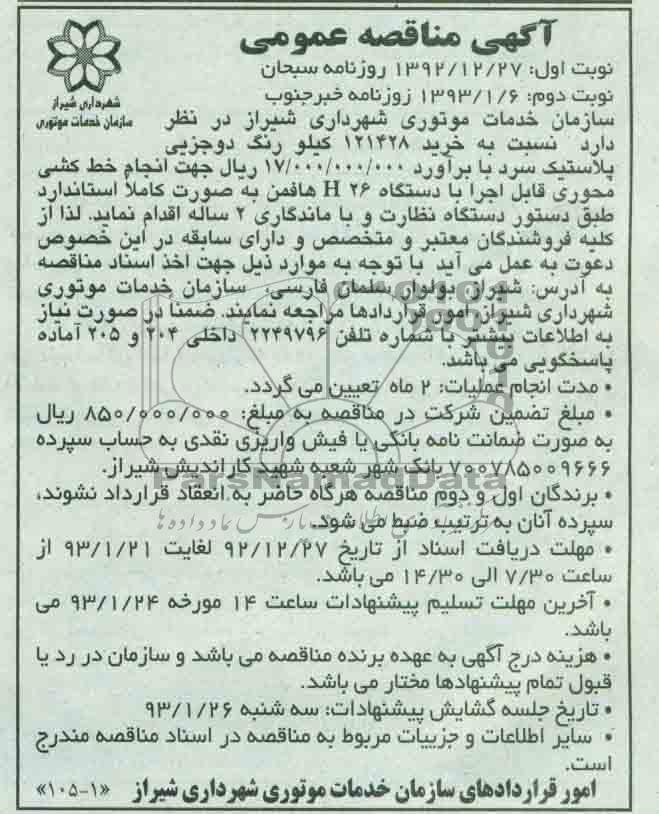 آگهی مناقصه عمومی
نوبت اول: ۱۳۹۲/۱۲/۲۷ روزنامه سبحان
نوبت دوم: ۱۳۹۳/۱/۶ روزنامه خبرجنوب
شهرداری شیراز
سازمان خدمات موتوری
سازمان خدمات موتوری شهرداری شیراز در نظر
دارد نسبت به خرید ۱۲۱۴۲۸ کیلو رنگ دوجزیی
پلاستیک سرد با برآورد ۱۷/۰۰۰/۰۰۰/۰۰۰ ریال جهت انجام خط کشی
محوری قابل اجرا با دستگاه H ۲۶ هافمن به صورت کاملاً استاندارد
طبق دستور دستگاه نظارت و با ماندگاری ۲ ساله اقدام نماید. لذا از
کلیه فروشندگان معتبر و متخصص و دارای سابقه در این خصوص
دعوت به عمل می آید با توجه به موارد ذیل جهت اخذ اسناد مناقصه
به آدرس: شیراز، بولوار سلمان فارسی، سازمان خدمات موتوری
شهرداری شیراز، امور قراردادها مراجعه نمایند. ضمنا در صورت نیاز
به اطلاعات بیشتر با شماره تلفن ۲۲۴۹۷۹۶ داخلی ۲۰۴ و ۲۰۵ آماده
پاسخگویی می باشد.
• مدت انجام عملیات: ۲ ماه تعیین می گردد.
• مبلغ تضمین شرکت در مناقصه به مبلغ: ۸۵۰/۰۰۰/۰۰۰ ریال
به صورت ضمانت نامه بانکی یا فیش واریزی نقدی به حساب سپرده
۷۰۰۷۸۵۰۰۹۶۶۶ بانک شهر شعبه شهید کاراندیش شیراز.
ParsNamadData
• برندگان اول و دوم مناقصه هرگاه حاضر به انعقاد قرارداد نشوند،
سپرده آنان به ترتیب ضبط می شود.
• مهلت دریافت اسناد از تاریخ ۹۲/۱۲/۲۷ لغایت ۹۳/۱/۲۱ از
ساعت ۷/۳۰ الی ۱۴/۳۰ می باشد.
• آخرین مهلت تسلیم پیشنهادات ساعت ۱۴ مورخه ۹۳/۱/۲۴ می
باشد.
• هزینه درج آگهی به عهده برنده مناقصه می باشد و سازمان در رد یا
قبول تمام پیشنهادها مختار می باشد.
• تاریخ جلسه گشایش پیشنهادات: سه شنبه ۹۳/۱/۲۶
• سایر اطلاعات و جزییات مربوط به مناقصه در اسناد مناقصه مندرج
است.
امور قراردادهای سازمان خدمات موتوری شهرداری شیراز «۱۰۵-۱»